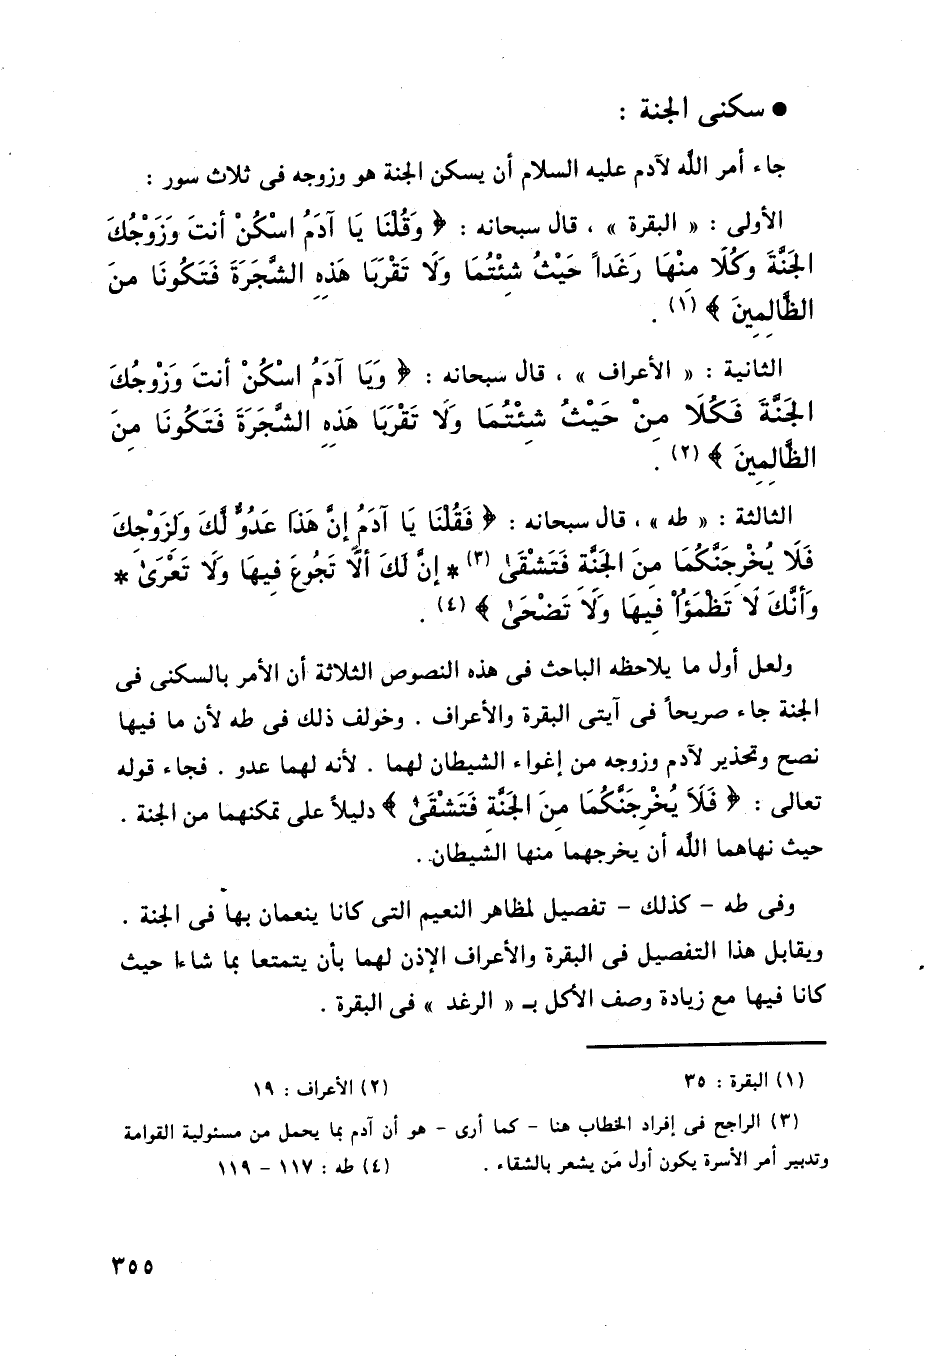 ● سكنى الجنة :
جاء أمر اللّه لآدم عليه السلام أن يسكن الجنة هو وزوجه فى ثلاث سور :
الأولى : « البقرة » ، قال سبحانه : ﴿ وَقُلْنَا يَا آدَمُ اسْكُنْ أنتَ وَزَوْجُكَ
الجَنَّةَ وَكُلَا مِنْهَا رَغَداً حَيْثُ شِئْتُمَا وَلَا تَقْرَبَا هَذِهِ الشَّجَرَةَ فَتَكُونَا مِنَ
الظَّالِمِينَ ﴾ (١) .
الثانية : « الأعراف » ، قال سبحانه : ﴿ وَيَا آدَمُ اسْكُنْ أنتَ وَزَوْجُكَ
الجَنَّةَ فَكُلَا مِنْ حَيْثُ شِئْتُمَا وَلَا تَقْرَبَا هَذِهِ الشَّجَرَةَ فَتَكُونَا مِنَ
الظَّالِمِينَ ﴾ (٢) .
الثالثة : « طه » ، قال سبحانه : ﴿ فَقُلْنَا يَا آدَمُ إِنَّ هَذَا عَدُوٌّ لَّكَ وَلِزَوْجِكَ
فَلَا يُخْرِجَنَّكُمَا مِنَ الجَنَّةِ فَتَشْقَىٰ (٣) * إِنَّ لَكَ ألَّا تَجُوعَ فِيهَا وَلَا تَعْرَىٰ *
وَأنَّكَ لَا تَظْمَؤُاْ فِيهَا وَلَا تَضْحَىٰ ﴾ (٤) .
ولعل أول ما يلاحظه الباحث فى هذه النصوص الثلاثة أن الأمر بالسكنى فى
الجنة جاء صريحاً فى آيتى البقرة والأعراف . وخولف ذلك فى طه لأن ما فيها
نصح وتحذير لآدم وزوجه من إغواء الشيطان لهما . لأنه لهما عدو . فجاء قوله
تعالى : ﴿ فَلَا يُخْرِجَنَّكُمَا مِنَ الجَنَّةِ فَتَشْقَىٰ ﴾ دليلاً على تمكنهما من الجنة .
حيث نهاهما اللّه أن يخرجهما منها الشيطان .
وفى طه – كذلك – تفصيل لمظاهر النعيم التى كانا ينعمان بها فى الجنة .
ويقابل هذا التفصيل فى البقرة والأعراف الإذن لهما بأن يتمتعا بما شاءا حيث
كانا فيها مع زيادة وصف الأكل بـ « الرغد » فى البقرة .
(١) البقرة : ٣٥ (٢) الأعراف : ١٩
(٣) الراجح فى إفراد الخطاب هنا – كما أرى – هو أن آدم بما يحمل من مسئولية القوامة
وتدبير أمر الأسرة يكون أول مَن يشعر بالشقاء . (٤) طه : ١١٧ – ١١٩
٣٥٥